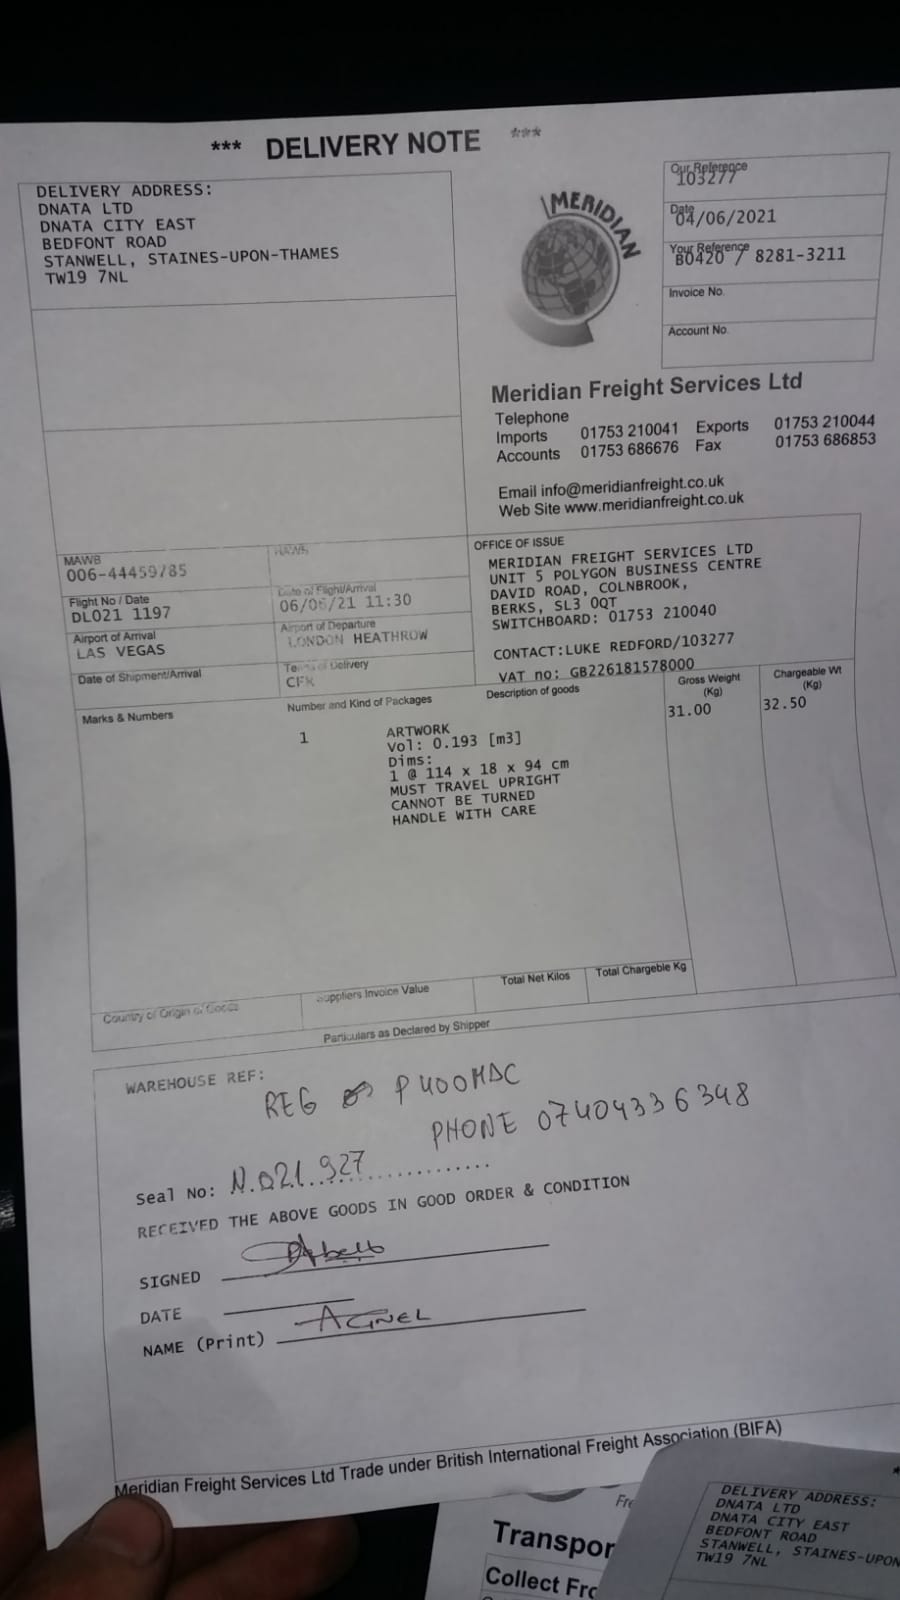 *** DELIVERY NOTE ***
DELIVERY ADDRESS:
DNATA LTD
DNATA CITY EAST
BEDFONT ROAD
STANWELL, STAINES-UPON-THAMES
TW19 7NL
MERIDIAN
Our Reference
103277
Date
04/06/2021
Your Reference
B0420 / 8281-3211
Invoice No.
Account No.
Meridian Freight Services Ltd
Telephone
Imports 01753 210041 Exports 01753 210044
Accounts 01753 686676 Fax 01753 686853
Email info@meridianfreight.co.uk
Web Site www.meridianfreight.co.uk
MAWB
006-44459785
HAWB
Flight No / Date
DL021 1197
Date of Flight/Arrival
06/06/21 11:30
Airport of Arrival
LAS VEGAS
Airport of Departure
LONDON HEATHROW
Date of Shipment/Arrival
Terms of Delivery
OFFICE OF ISSUE
MERIDIAN FREIGHT SERVICES LTD
UNIT 5 POLYGON BUSINESS CENTRE
DAVID ROAD, COLNBROOK,
BERKS, SL3 0QT
SWITCHBOARD: 01753 210040
CONTACT:LUKE REDFORD/103277
VAT no: GB226181578000
Marks & Numbers
Number and Kind of Packages
Description of goods
Gross Weight
(Kg)
Chargeable Wt
(Kg)
1
ARTWORK
31.00
32.50
Vol: 0.193 [m3]
Dims:
1 @ 114 x 18 x 94 cm
MUST TRAVEL UPRIGHT
CANNOT BE TURNED
HANDLE WITH CARE
Country of Origin of Goods
Suppliers Invoice Value
Total Net Kilos
Total Chargeble Kg
Particulars as Declared by Shipper
WAREHOUSE REF:
REG P400MDC
PHONE 07404336348
Seal No: N.021.927
RECEIVED THE ABOVE GOODS IN GOOD ORDER & CONDITION
SIGNED
DATE
NAME (Print) AGNEL
Meridian Freight Services Ltd Trade under British International Freight Association (BIFA)
Transpor
Collect Fro
DELIVERY ADDRESS:
DNATA LTD
DNATA CITY EAST
BEDFONT ROAD
STANWELL, STAINES-UPON
TW19 7NL